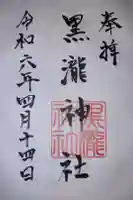 奉拝
黒瀧神社
令和六年四月十四日
黒瀧
神社